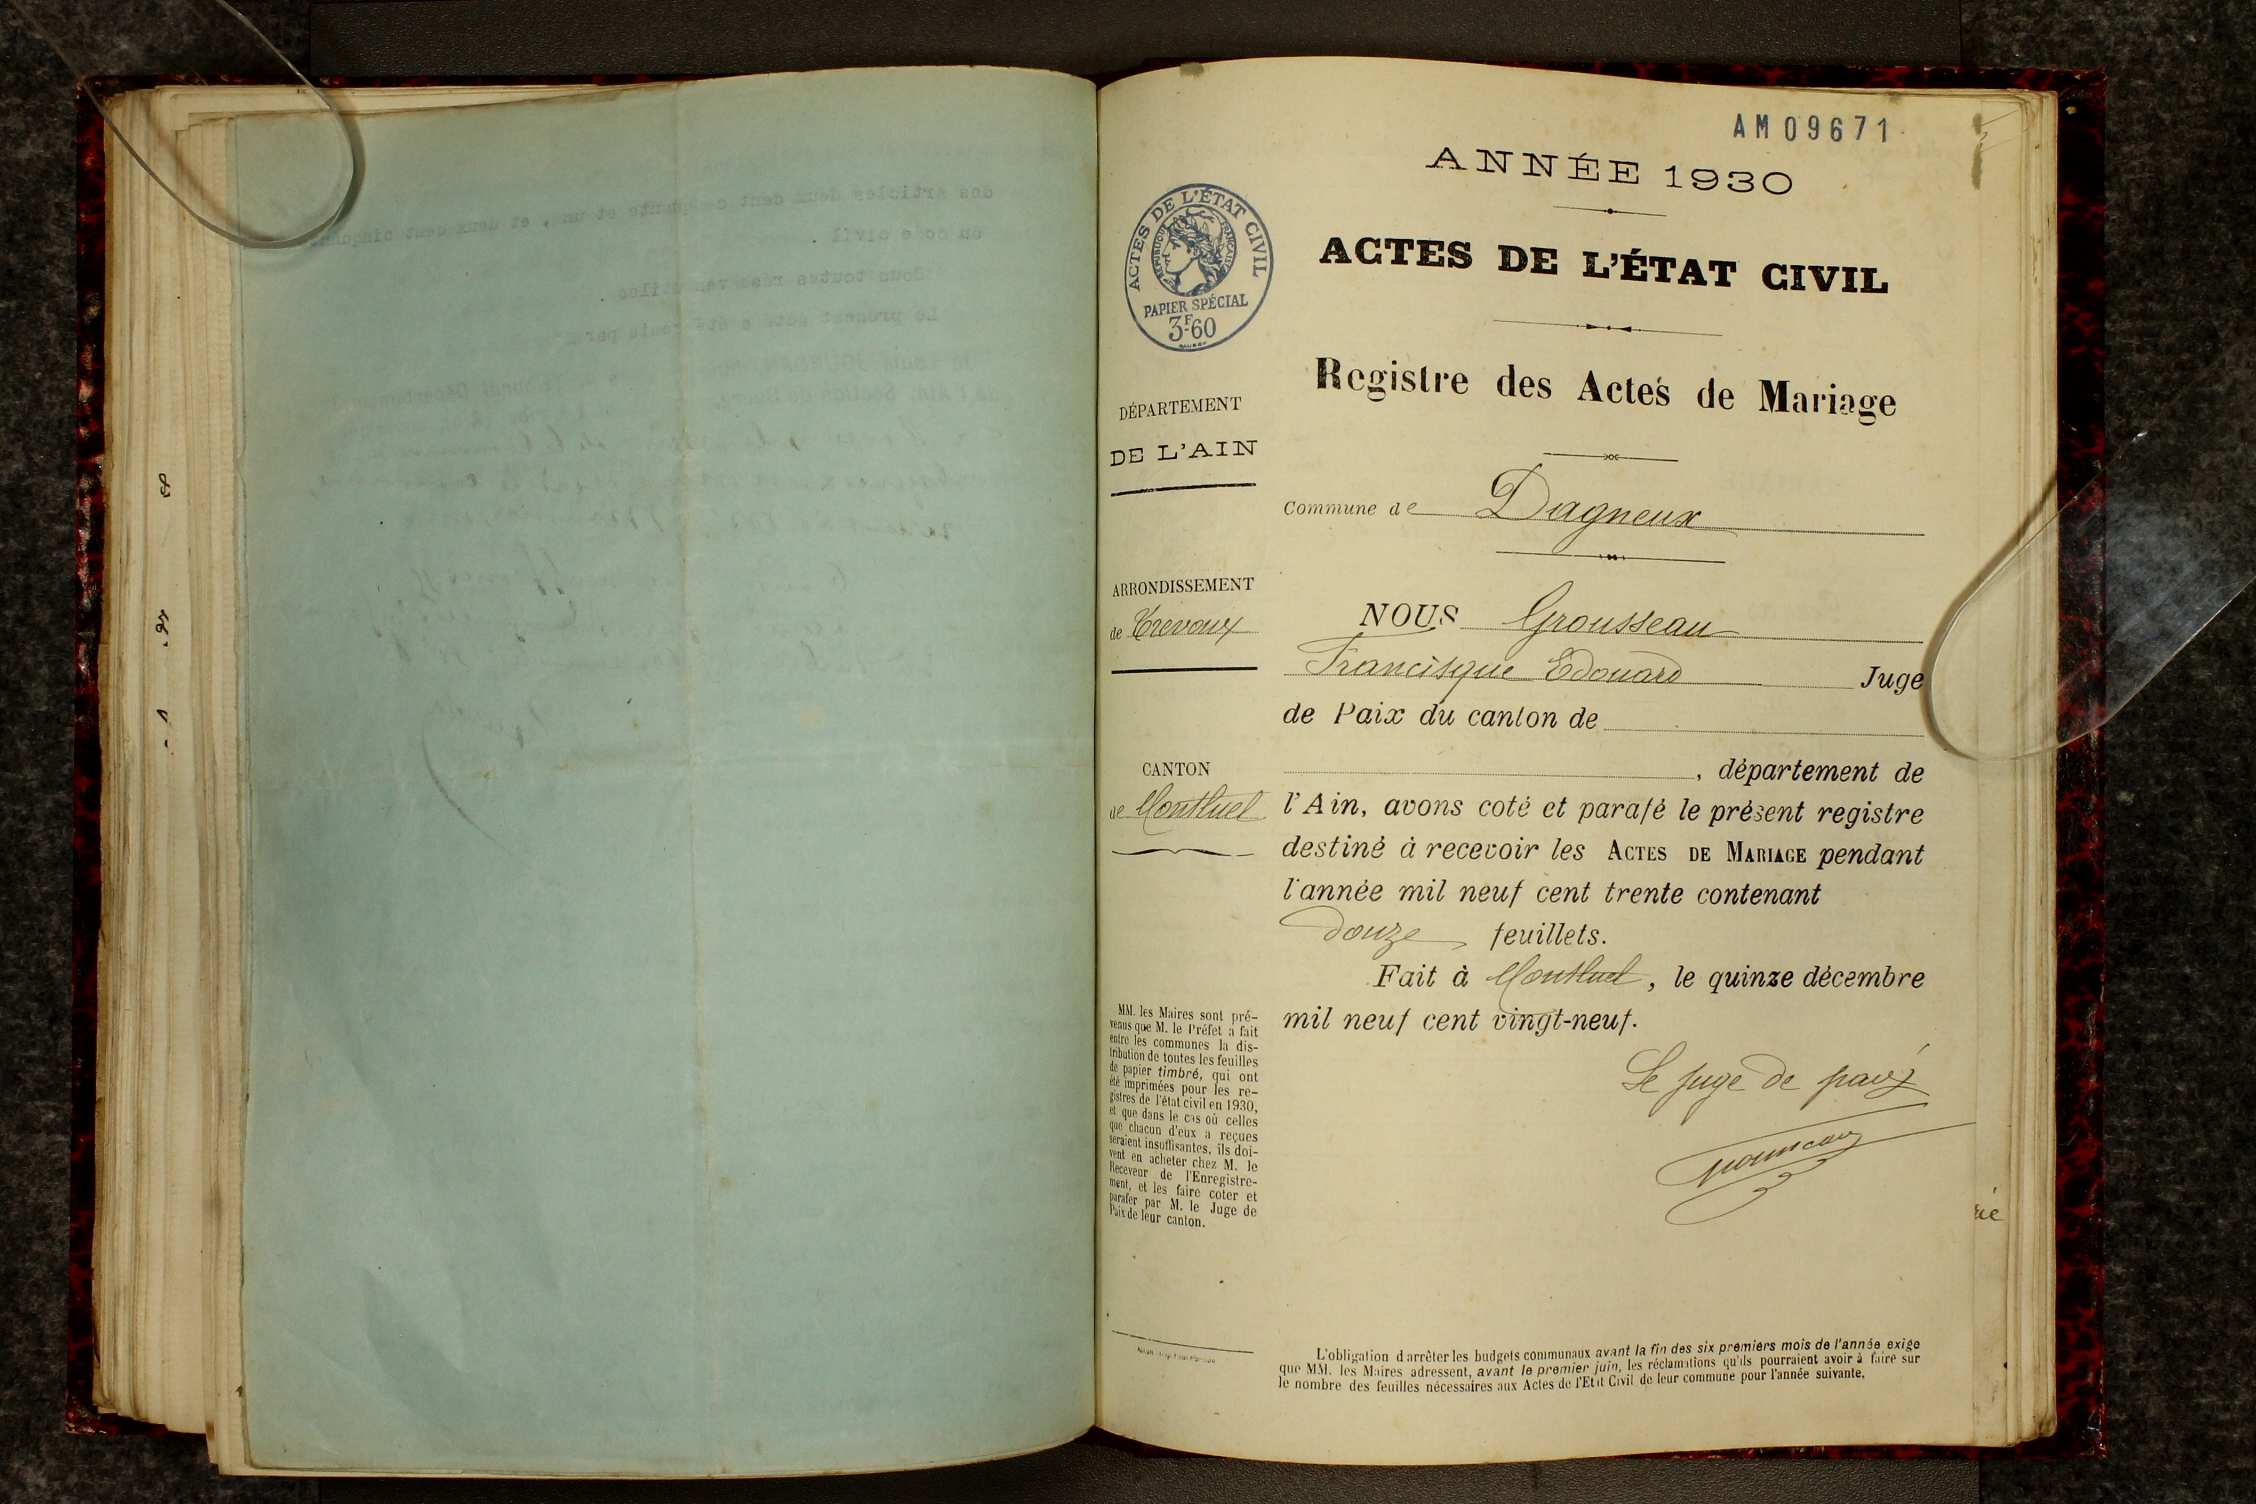 AM09671
ANNÉE 1930
ACTES DE L'ÉTAT CIVIL
RÉPUBLIQUE FRANÇAISE
PAPIER SPÉCIAL
3F.60
ACTES DE L'ÉTAT CIVIL
Registre des Actes de Mariage
DÉPARTEMENT
DE L'AIN
Commune de Dagneux
ARRONDISSEMENT
de Trévoux
CANTON
de Montluel
NOUS Grousseau
Francisque Edouard Juge
de Paix du canton de
, département de
l'Ain, avons coté et parafé le présent registre
destiné à recevoir les ACTES DE MARIAGE pendant
l'année mil neuf cent trente contenant
douze feuillets.
Fait à Montluel, le quinze décembre
mil neuf cent vingt-neuf.
Le juge de paix
MM. les Maires sont pré-
venus que M. le Préfet a fait
entre les communes la dis-
tribution de toutes les feuilles
de papier timbré, qui ont
été imprimées pour les re-
gistres de l'état civil en 1930,
et que dans le cas où celles
que chacun d'eux a reçues
seraient insuffisantes, ils doi-
vent en acheter chez M. le
Receveur de l'Enregistre-
ment, et les faire coter et
parafer par M. le Juge de
Paix de leur canton.
L'obligation d'arrêter les budgets communaux avant la fin des six premiers mois de l'année exige
que MM. les Maires adressent, avant le premier juin, les réclamations qu'ils pourraient avoir à faire sur
le nombre des feuilles nécessaires aux Actes de l'Etat Civil de leur commune pour l'année suivante.